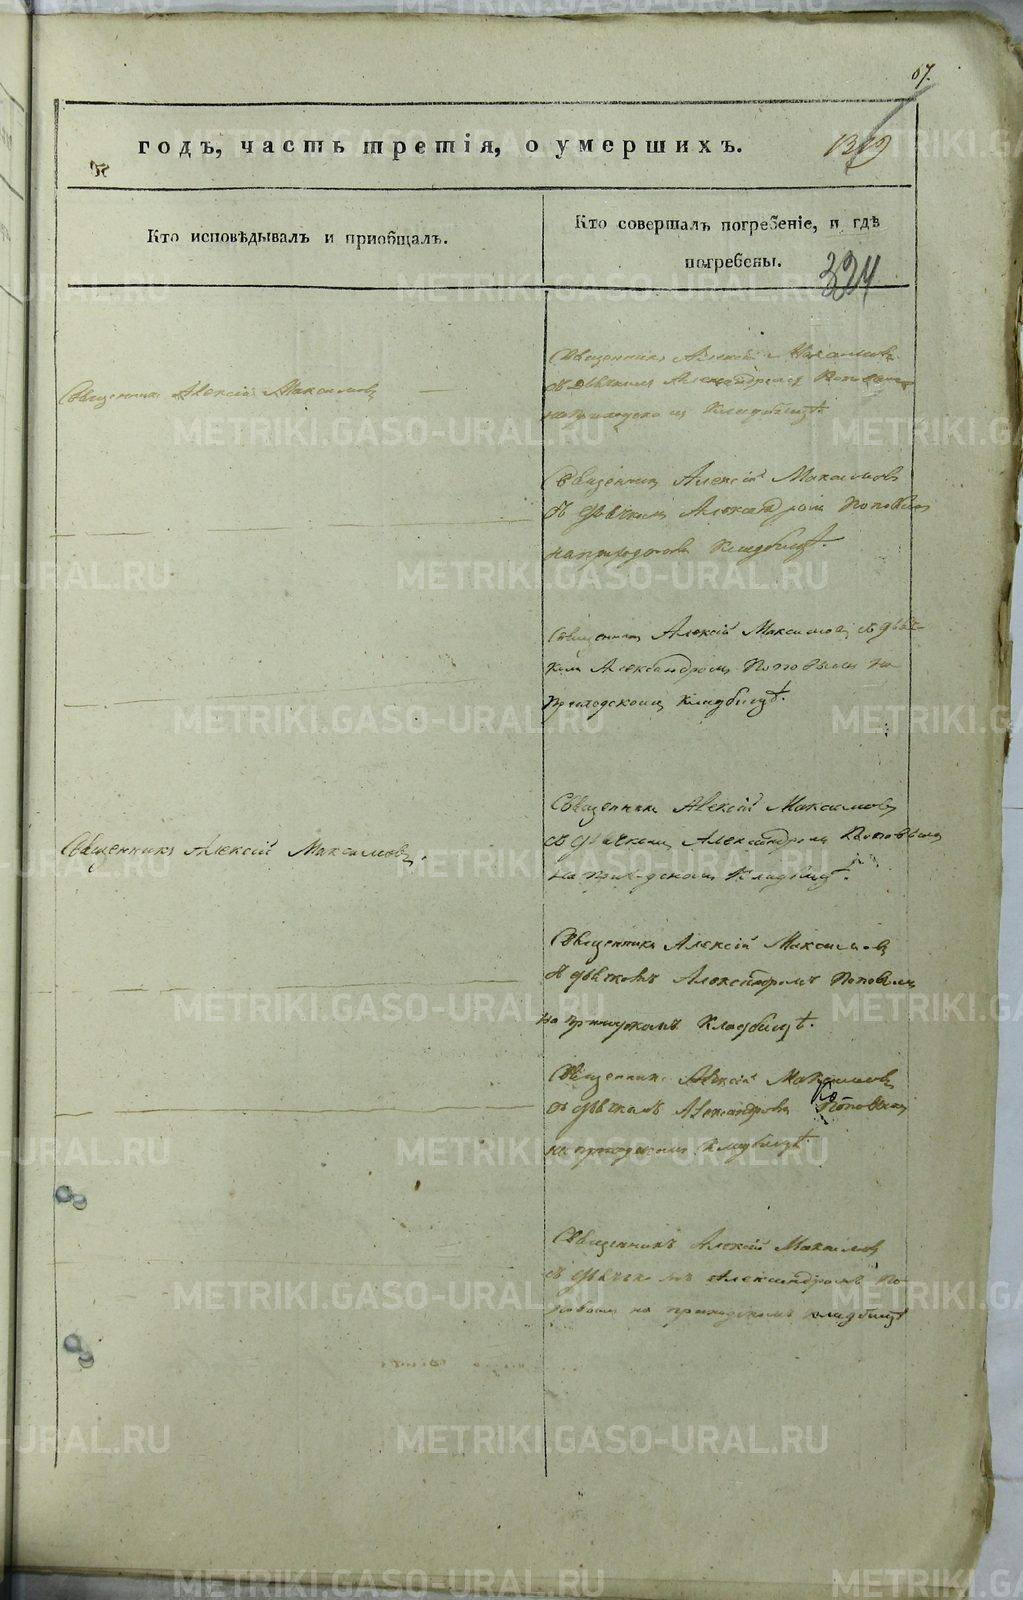 67.
годъ, часть третія, о умершихъ.
1319
324
Кто исповѣдывалъ и пріобщалъ.
Кто совершалъ погребеніе, и гдѣ
погребены.
Священникъ Алексій Максимовъ
Священникъ Алексій Максимовъ
съ дьячкомъ Александромъ Поповымъ
на приходскомъ кладбищѣ.
Священникъ Алексій Максимовъ
съ дьячкомъ Александромъ Поповымъ
на приходскомъ кладбищѣ.
Священникъ Алексій Максимовъ съ дьяч-
комъ Александромъ Поповымъ на
приходскомъ кладбищѣ.
Священникъ Алексій Максимовъ.
Священникъ Алексій Максимовъ
съ дьячкомъ Александромъ Поповымъ
на приходскомъ кладбищѣ.
Священникъ Алексій Максимовъ
съ дьячкомъ Александромъ Поповымъ
на приходскомъ кладбищѣ.
Священникъ Алексій Максимовъ
съ дьячкомъ Александромъ Поповымъ
на приходскомъ кладбищѣ.
Священникъ Алексій Максимовъ
съ дьячкомъ Александромъ По-
повымъ на приходскомъ кладбищѣ
METRIKI.GASO-URAL.RU